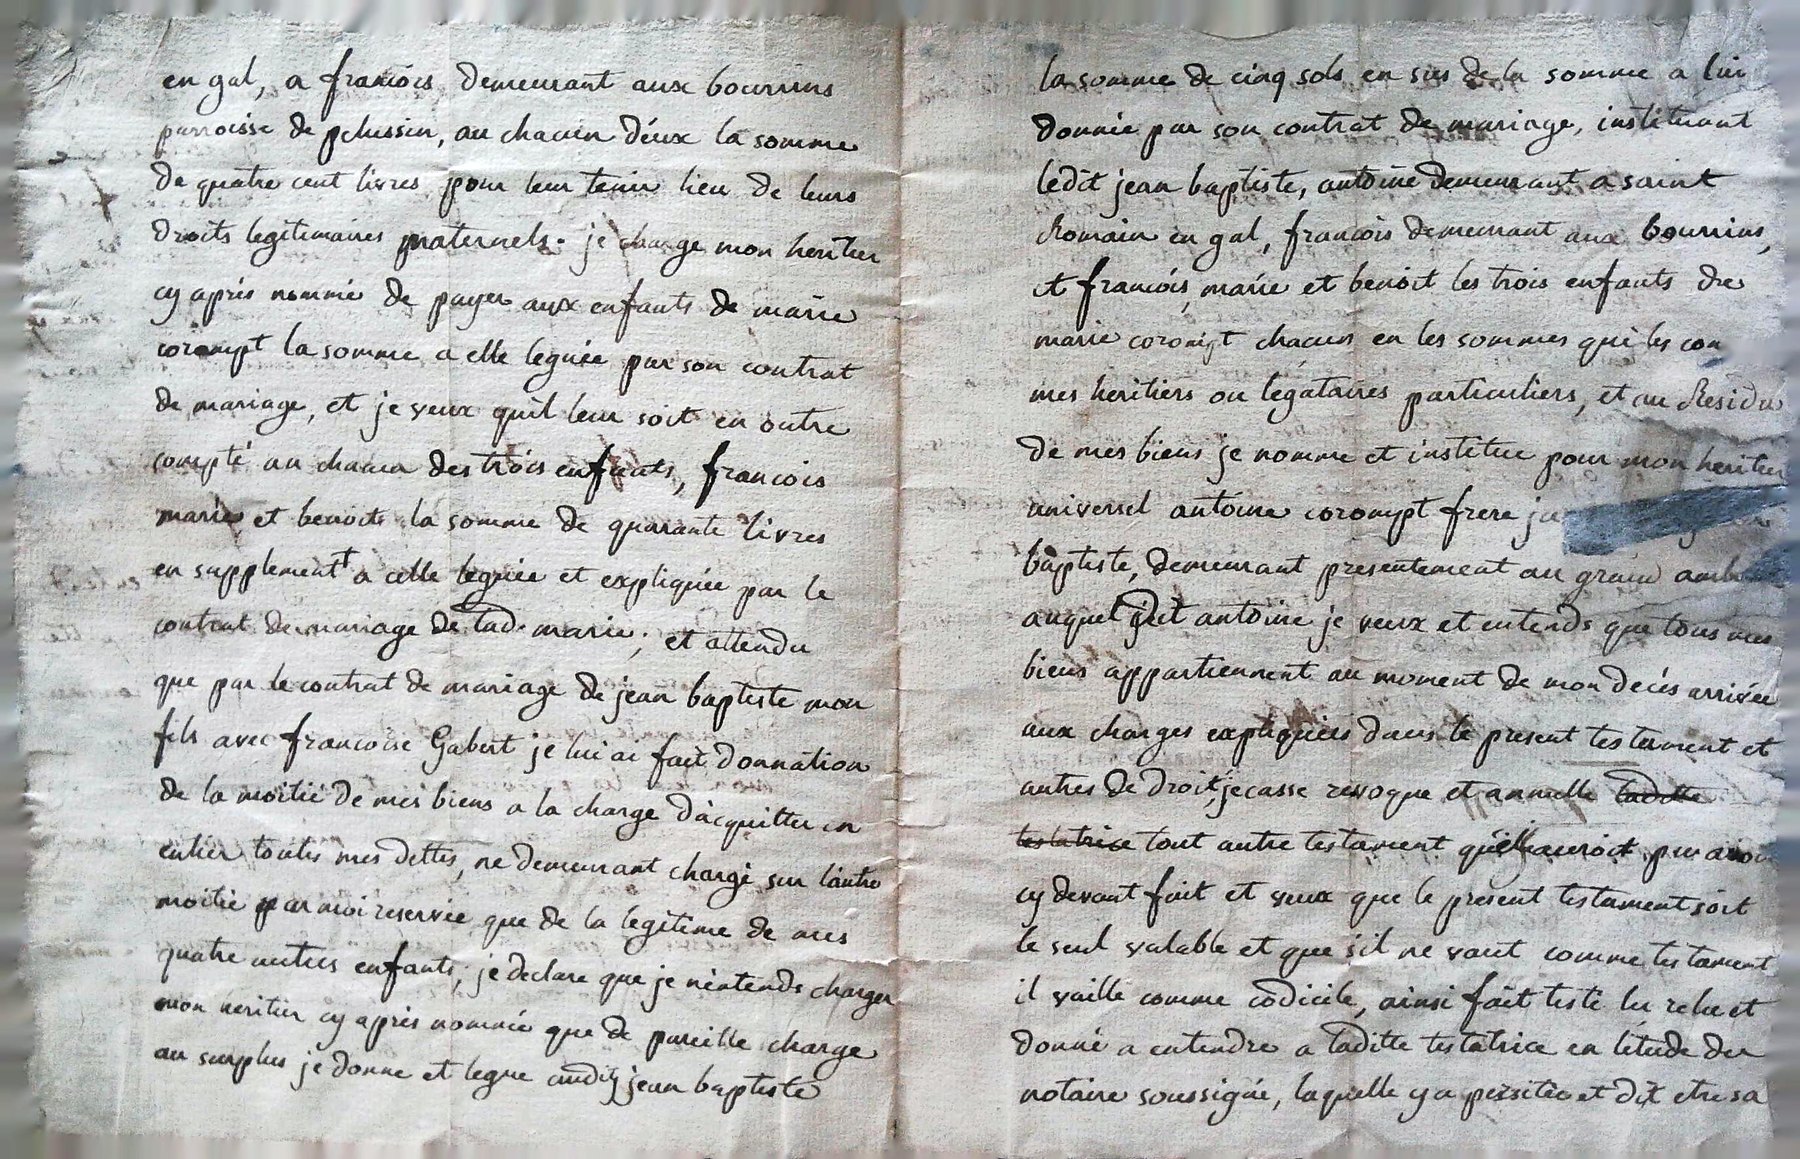 en gal, a francois demeurant aux bourrins
parroisse de pelussin, au chacun d'eux la somme
de quatre cent livres pour leur tenir lieu de leurs
droits legitimaires maternels. je charge mon heritier
cy après nommé de payer aux enfants de marie
corompt la somme a elle leguée par son contrat
de mariage, et je veux qu'il leur soit en outre
compté au chacun des trois enfants, francois
marie et benoit la somme de quarante livres
en supplement a celle leguée et expliquée par le
contrat de mariage de lad. marie; et attendu
que par le contrat de mariage de jean baptiste mon
fils avec francoise Gabert je lui ai fait donnation
de la moitié de mes biens a la charge d'acquitter en
entier toutes mes dettes, ne demeurant chargé sur l'autre
moitié par moi reservée que de la legitime de mes
quatre autres enfants; je declare que je n'entends charger
mon heritier cy après nommée que de pareille charge
au surplus je donne et legue audit jean baptiste
la somme de cinq sols en sus de la somme a lui
donnée par son contrat de mariage, instituant
ledit jean baptiste, antoine demeurant a saint
Romain en gal, francois demeurant aux bourrins,
et francois, marie et benoit les trois enfants de
marie corompt chacun en les sommes qui les con
mes heritiers ou legataires particuliers, et au Residu
de mes biens je nomme et institue pour mon heritier
universel antoine corompt frere
baptiste, demeurant presentement au grand
auquel dit antoine je veux et entends que tous mes
biens appartiennent au moment de mon decés arrivée
aux charges expliquées dans le present testament et
autres de droit, je casse revoque et annulle laditte
testatrice tout autre testament qu'elle auroit pu avoir
cy devant fait et veux que le present testament soit
le seul valable et que s'il ne vaut comme testament
il vaille comme codicile, ainsi fait testé lu relu et
donné a entendre a laditte testatrice en l'étude du
notaire soussigné, laquelle y a persitée et dit etre sa